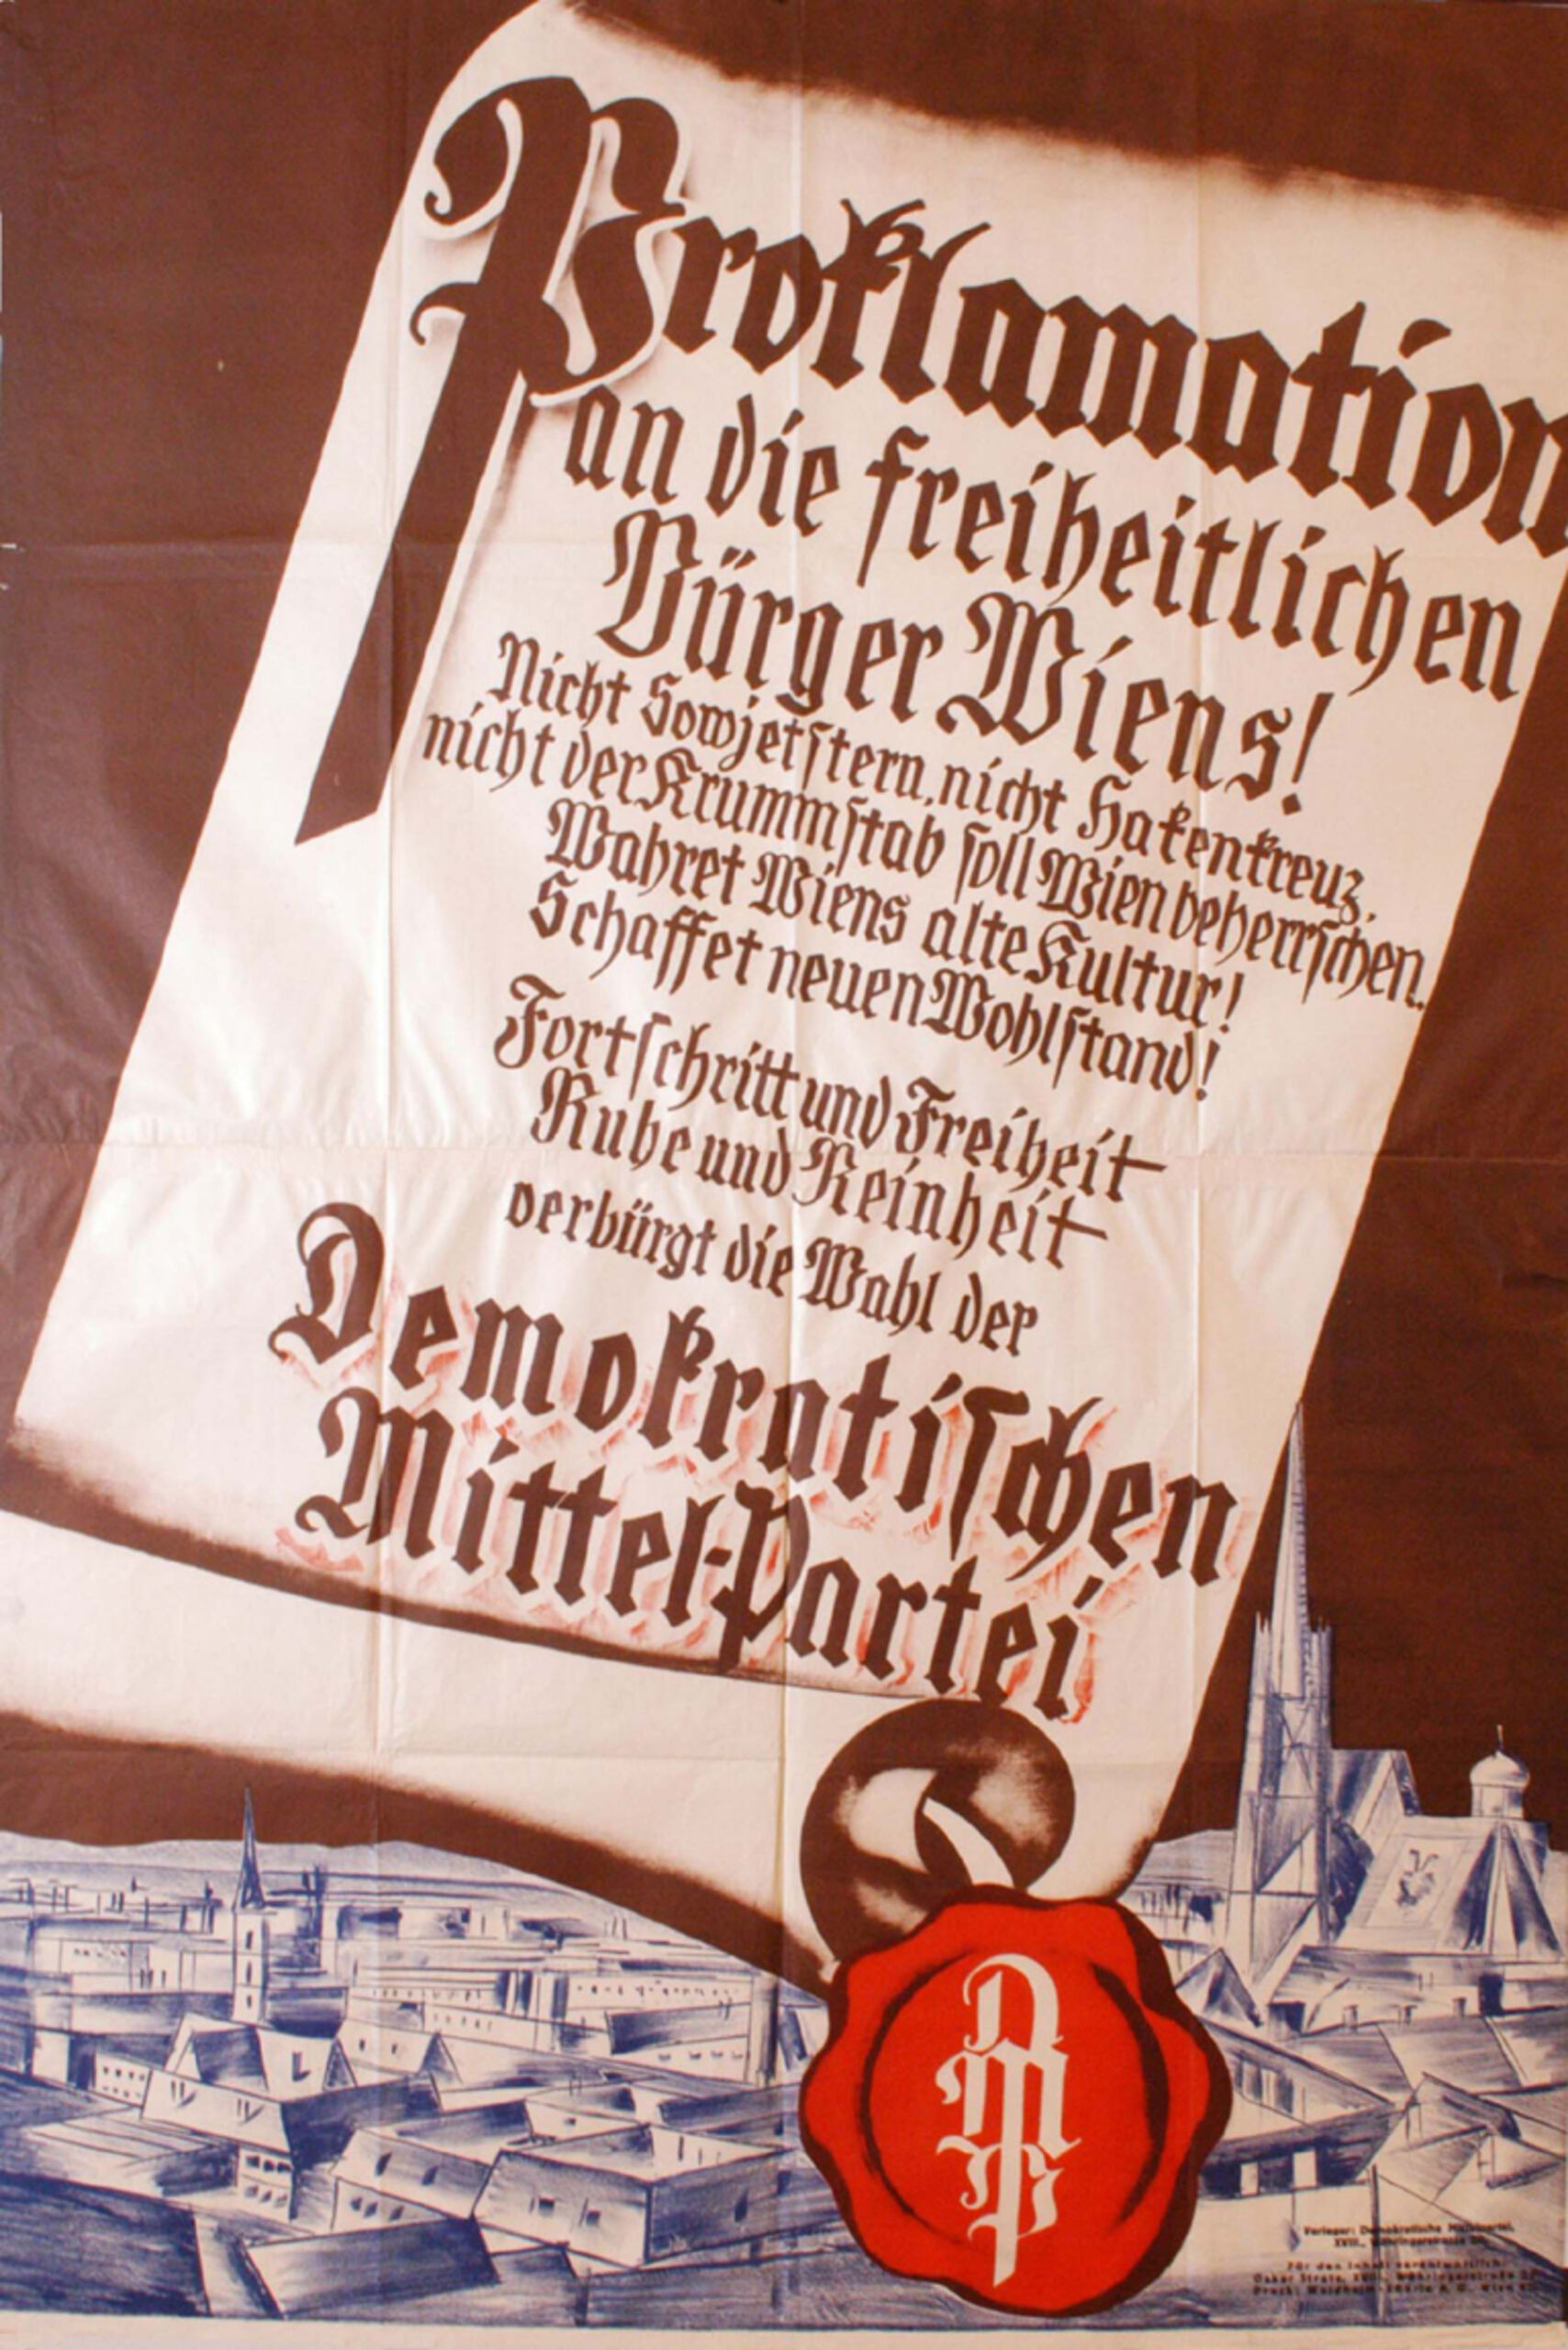 Proklamation
an die freiheitlichen
Bürger Wiens!
Nicht Sowjetstern, nicht Hakenkreuz,
nicht der Krummstab soll Wien beherrschen.
Wahret Wiens alte Kultur!
Schaffet neuen Wohlstand!
Fortschritt und Freiheit
Ruhe und Reinheit
verbürgt die Wahl der
Demokratischen
Mittel-Partei
DMP
Verleger: Demokratische Mittelpartei,
XVIII.,
Für den Inhalt verantwortlich:
Oskar
Druck: Waldheim-Eberle A. G. Wien